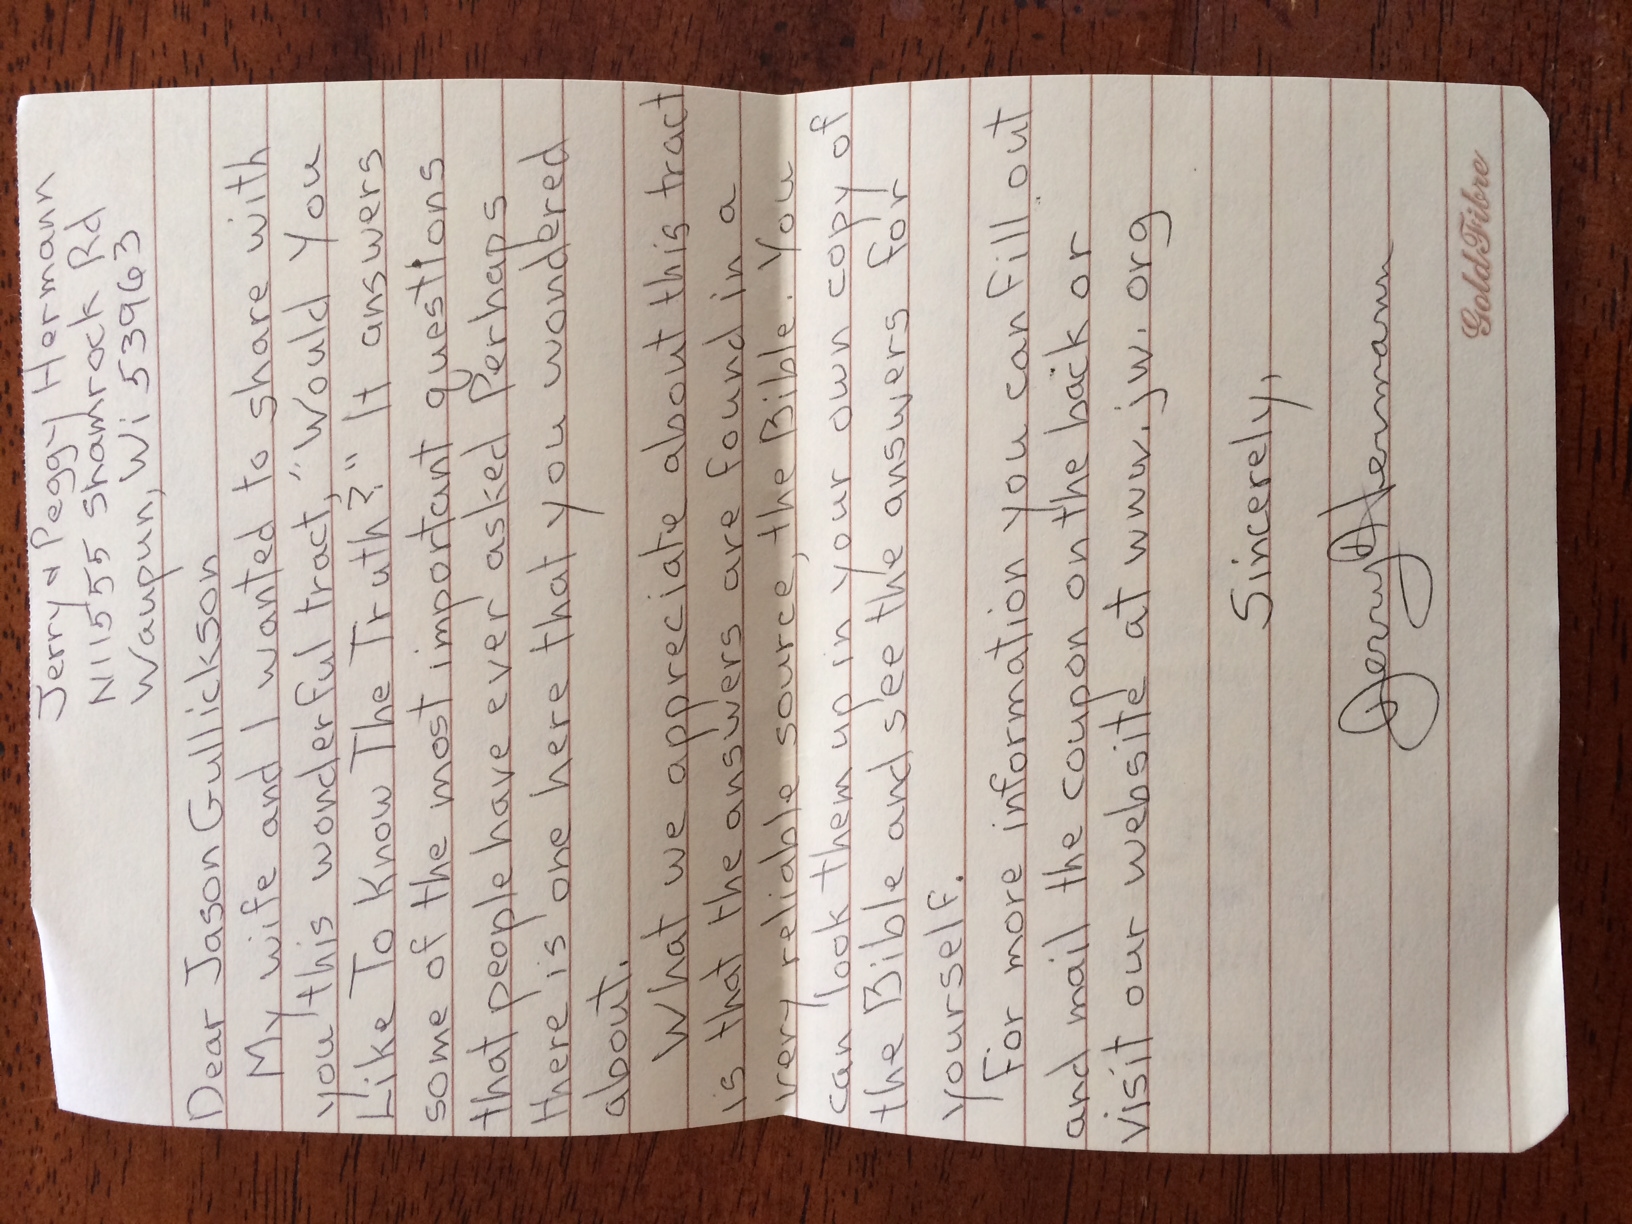 Jerry & Peggy Hermann
N11555 Shamrock Rd
Waupun, Wi 53963
Dear Jason Gullickson
My wife and I wanted to share with
you this wonderful tract, "Would You
Like To Know The Truth?" It answers
some of the most important questions
that people have ever asked Perhaps
there is one here that you wondered
about.
What we appreciate about this tract
is that the answers are found in a
very reliable source, the Bible. You
can look them up in your own copy of
the Bible and see the answers for
yourself.
For more information you can fill out
and mail the coupon on the back or
visit our website at www.jw.org
Sincerely,
Jerry Hermann
GoldFibre